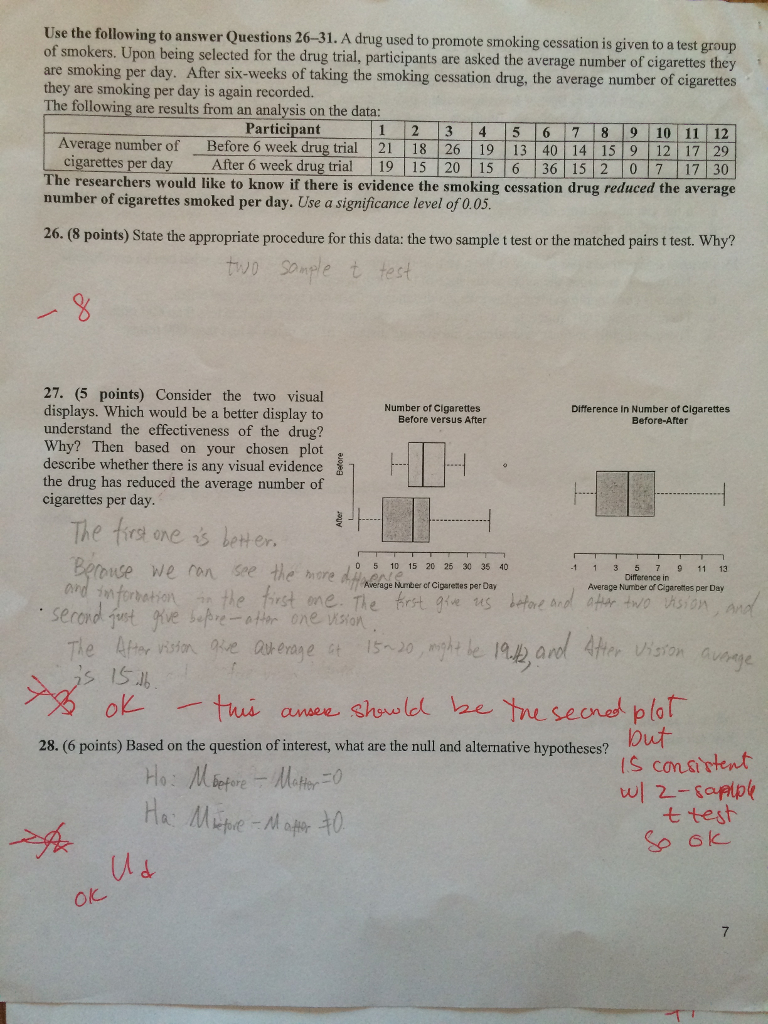 Use the following to answer Questions 26–31. A drug used to promote smoking cessation is given to a test group
of smokers. Upon being selected for the drug trial, participants are asked the average number of cigarettes they
are smoking per day. After six-weeks of taking the smoking cessation drug, the average number of cigarettes
they are smoking per day is again recorded.
The following are results from an analysis on the data:
Participant 1 2 3 4 5 6 7 8 9 10 11 12
Average number of cigarettes per day
Before 6 week drug trial 21 18 26 19 13 40 14 15 9 12 17 29
After 6 week drug trial 19 15 20 15 6 36 15 2 0 7 17 30
The researchers would like to know if there is evidence the smoking cessation drug reduced the average
number of cigarettes smoked per day. Use a significance level of 0.05.
26. (8 points) State the appropriate procedure for this data: the two sample t test or the matched pairs t test. Why?
two sample t test
- 8
27. (5 points) Consider the two visual
displays. Which would be a better display to
understand the effectiveness of the drug?
Why? Then based on your chosen plot
describe whether there is any visual evidence
the drug has reduced the average number of
cigarettes per day.
Number of Cigarettes
Before versus After
Before
After
0 5 10 15 20 25 30 35 40
Average Number of Cigarettes per Day
Difference in Number of Cigarettes
Before-After
-1 1 3 5 7 9 11 13
Difference in
Average Number of Cigarettes per Day
The first one is better.
Because we can see the more
and information in the first one. The first give us before and after two vision, and
second just give before-after one vision.
The After vision give average at 15~20, might be and After vision average
is 15
OK - this should be the second plot
but
is consistent
w/ 2-sample
t test
so OK
28. (6 points) Based on the question of interest, what are the null and alternative hypotheses?
Ho: Mbefore - Mafter =0
Ha: Mbefore - Mafter ≠0
OK
7